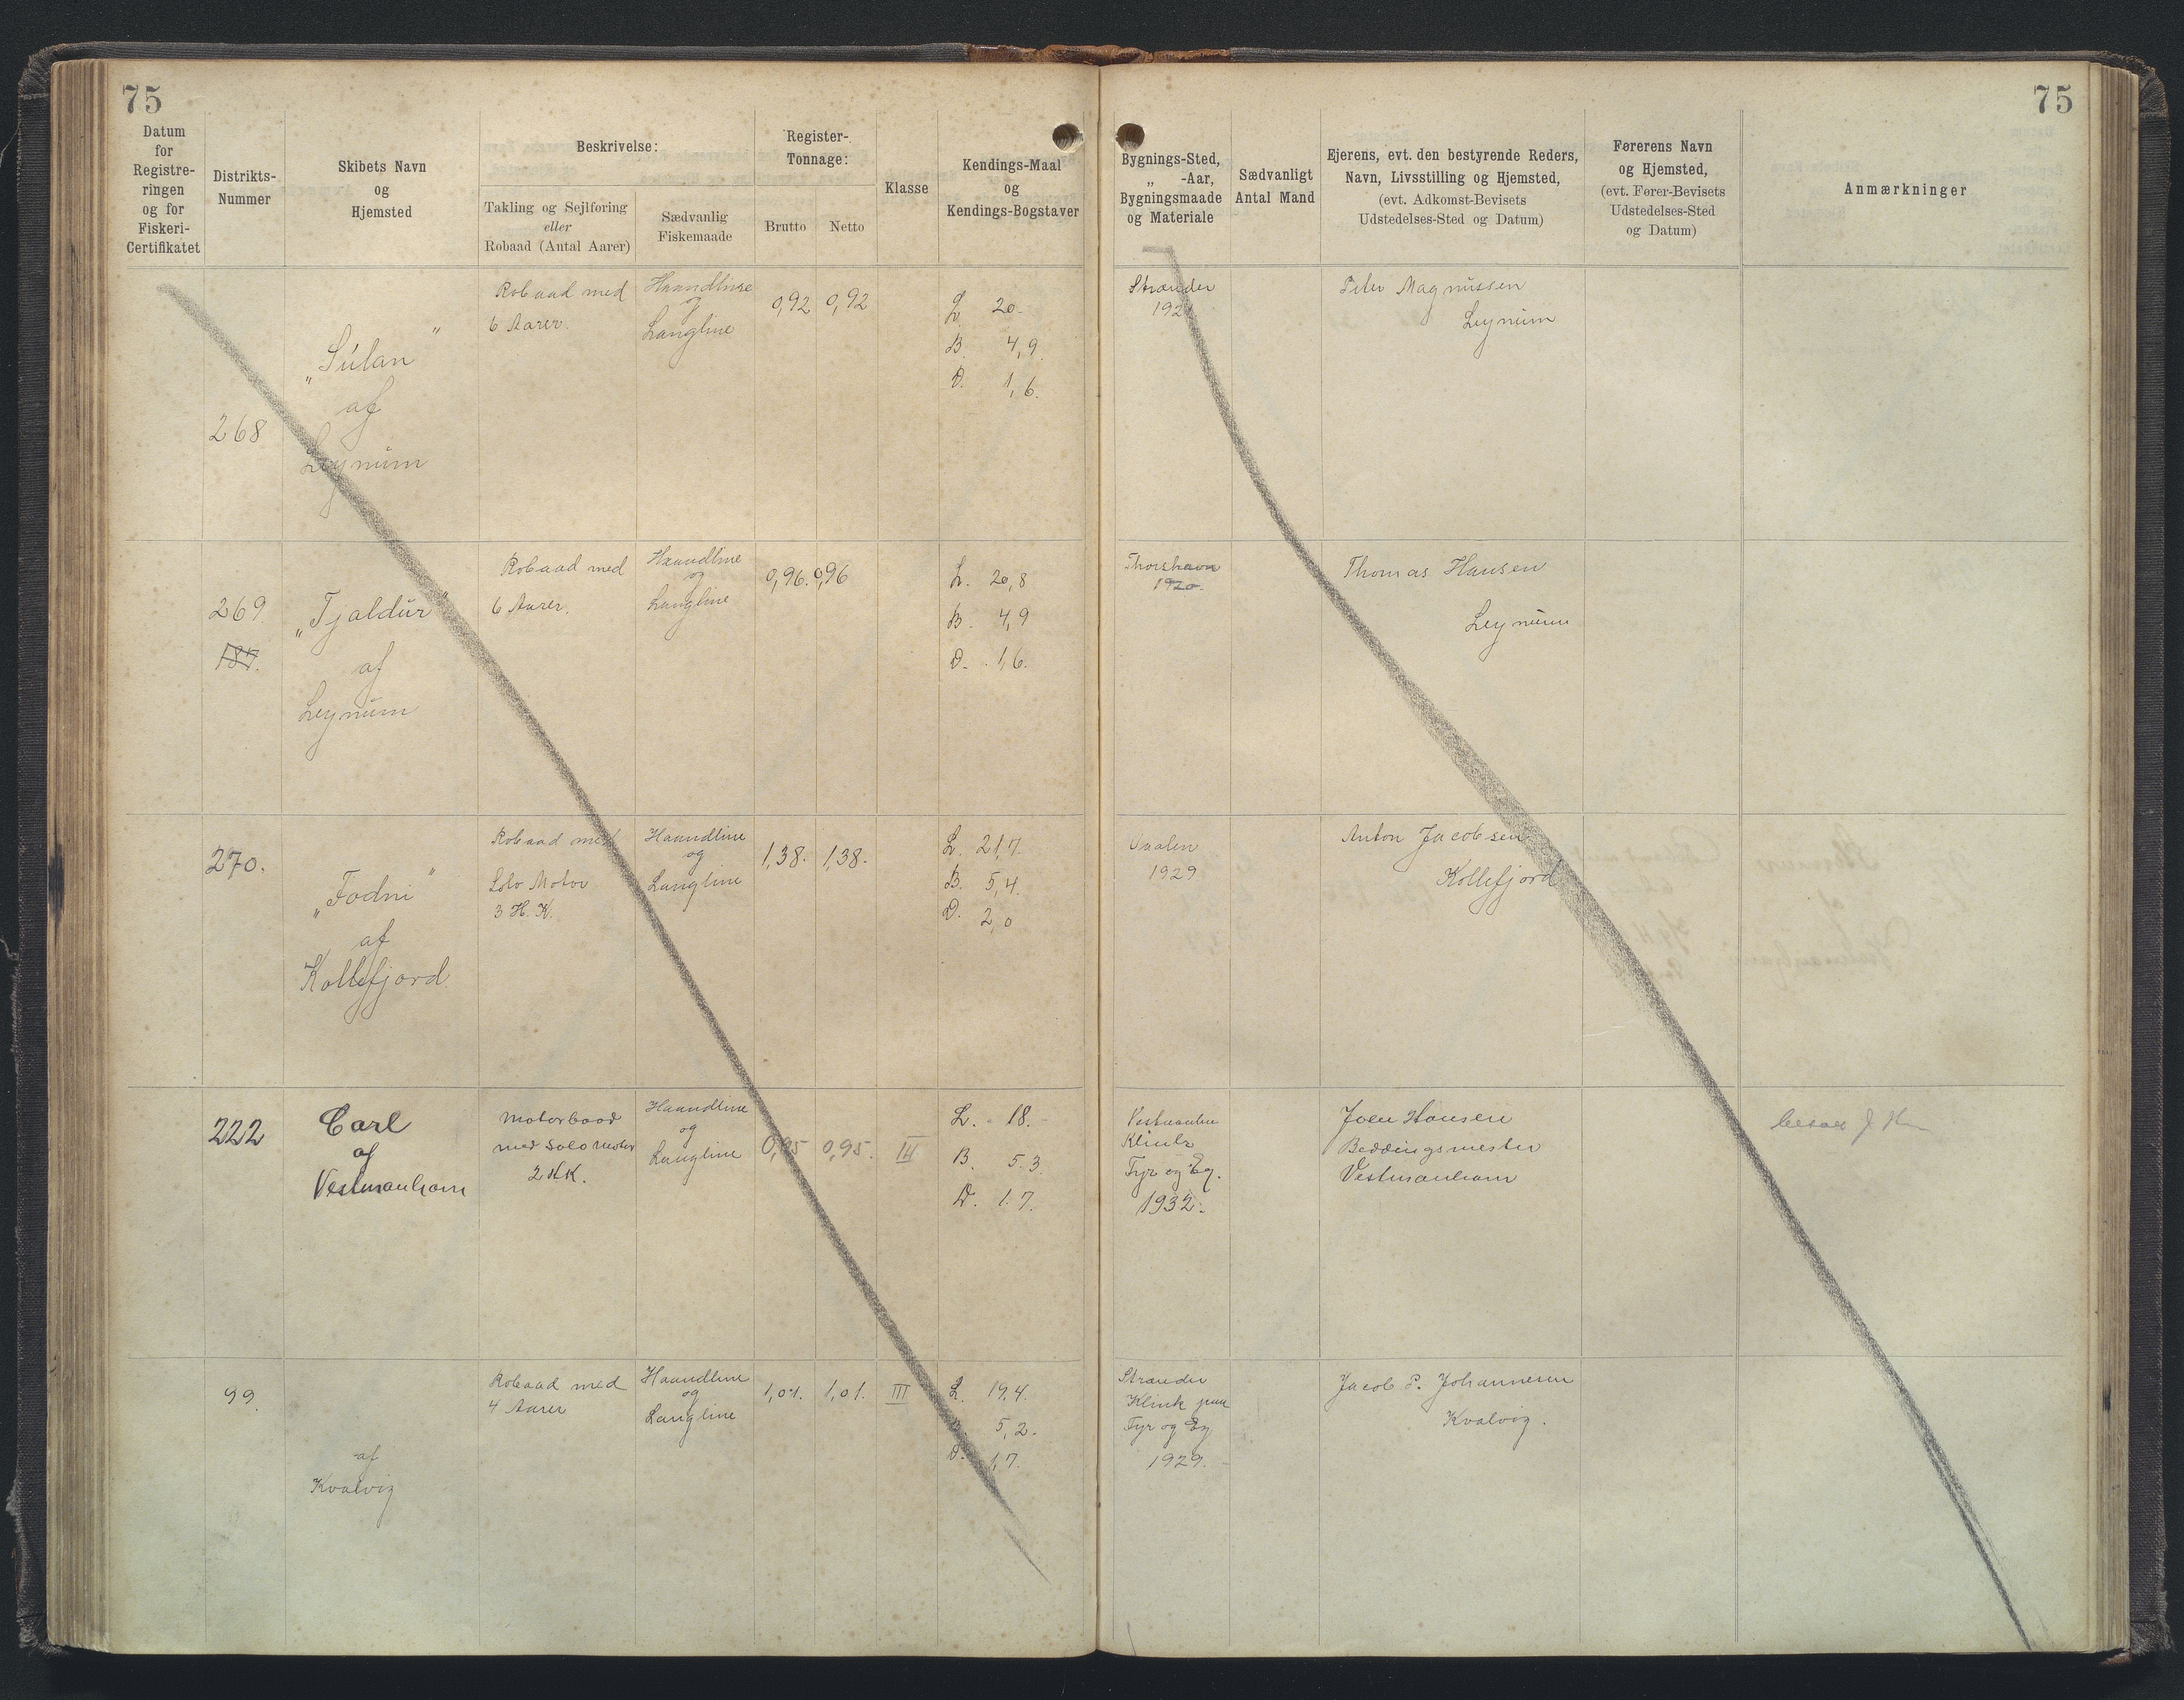 75
75
Datum
for
Registre-
ringen
og for
Fiskeri-
Certifikatet
Distrikts-
Nummer
Skibets Navn
og
Hjemsted
Beskrivelse:
Takling og Sejlføring
eller
Robaad (Antal Aarer)
Sædvanlig
Fiskemaade
Register-
Tonnage:
Brutto
Netto
Klasse
Kendings-Maal
og
Kendings-Bogstaver
Bygnings-Sted,
„ -Aar,
Bygningsmaade
og Materiale
Sædvanligt
Antal Mand
Ejerens, evt. den bestyrende Reders,
Navn, Livsstilling og Hjemsted,
(evt. Adkomst-Bevisets
Udstedelses-Sted og Datum)
Førerens Navn
og Hjemsted,
(evt. Fører-Bevisets
Udstedelses-Sted
og Datum)
Anmærkninger
268
„Súlan"
af
Leynúm
Robaad med
6 Aarer.
Haandline
og
Langline
0,92
0,92
L. 20-
B. 4,9.
D. 1,6.
Strænder
192
Peter Magnussen
Leynúm
269.
187.
„Tjaldúr"
af
Leynúm
Robaad med
6 Aarer.
Haandline
og
Langline
0,96.
0,96
L. 20,8
B. 4,9
D. 1,6.
Thorshavn
1920.
Thomas Hansen
Leynúm
270.
„Fodni"
af
Kollefjord.
Robaad med
Solo Motor
3 H. K.
Haandline
og
Langline
1,38.
1,38.
L. 21,7.
B. 5,4.
D. 2,0
1929
Anton Jacobsen
Kollefjord
222
Carl
af
Vestmanhavn
Motorbaad
med Solo Motor
2 H.K.
Haandline
og
Langline
0,95
0,95.
III
L. 18.
B. 5.3.
D. 1.7.
Klink
Fyr og Eg.
1932.
Joen Hansen
Beddingsmester
Vestmanhavn
99.
af
Kvalvig
Robaad med
4 Aarer
Haandline
og
Langline
1,01.
1,01.
III
L. 19.4.
B. 5,2.
D. 1,7.
Strænder
Klink paa
Fyr og Eg
1929.
Jacob P. Johannesen
Kvalvig.